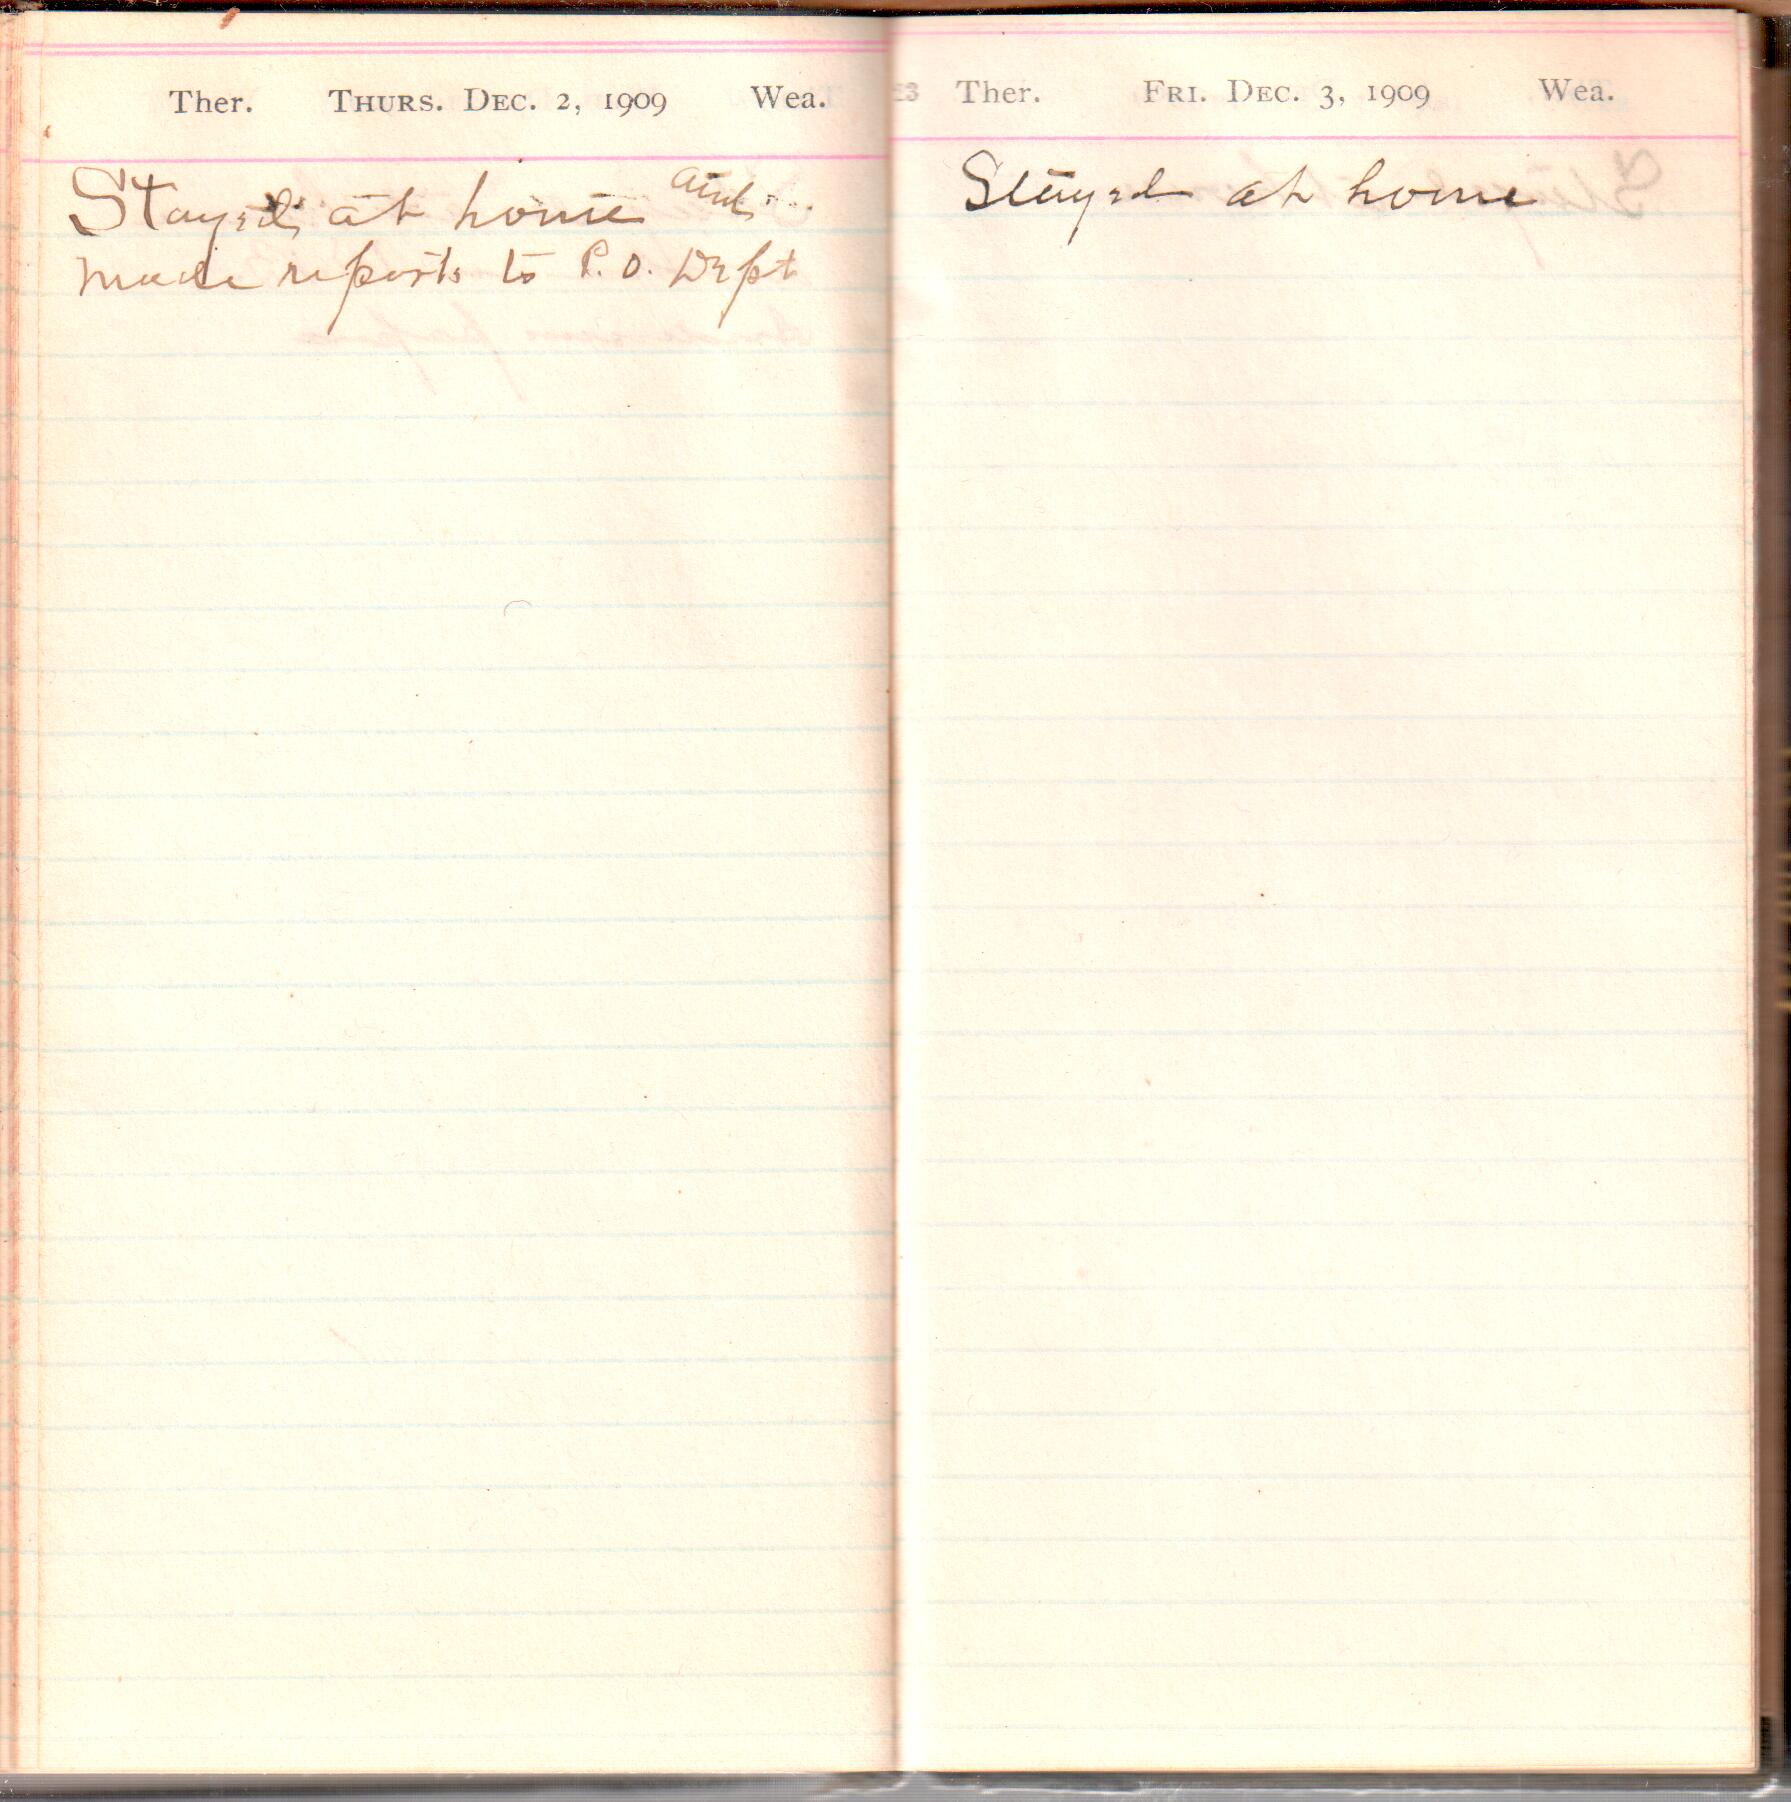 Ther. THURS. DEC. 2, 1909 Wea.
Stayed at home and
made reports to P. O. Dept
Ther. FRI. DEC. 3, 1909 Wea.
Stayed at home